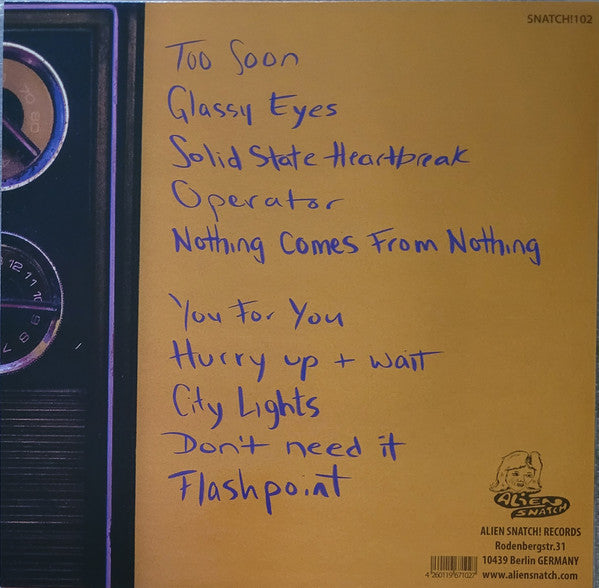 SNATCH!102
Too Soon
Glassy Eyes
Solid State Heartbreak
Operator
Nothing Comes From Nothing
You For You
Hurry up + wait
City Lights
Don't need it
Flashpoint
70
80
12 11 10
9
8
7
ALIEN
SNATCH
ALIEN SNATCH! RECORDS
Rodenbergstr.31
10439 Berlin GERMANY
www.aliensnatch.com
4 260119 671027